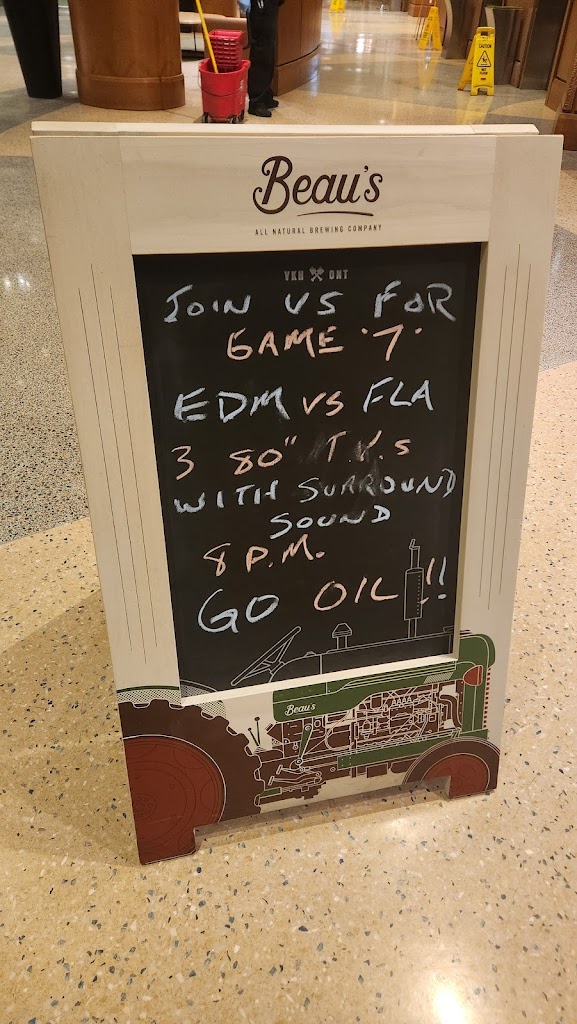 CAUTION
Beau's
ALL NATURAL BREWING COMPANY
VKH ONT
JOIN US FOR
GAME '7'
EDM VS FLA
3 80" T.V.s
WITH SURROUND
SOUND
8 P.M.
GO OIL !!
Beau's